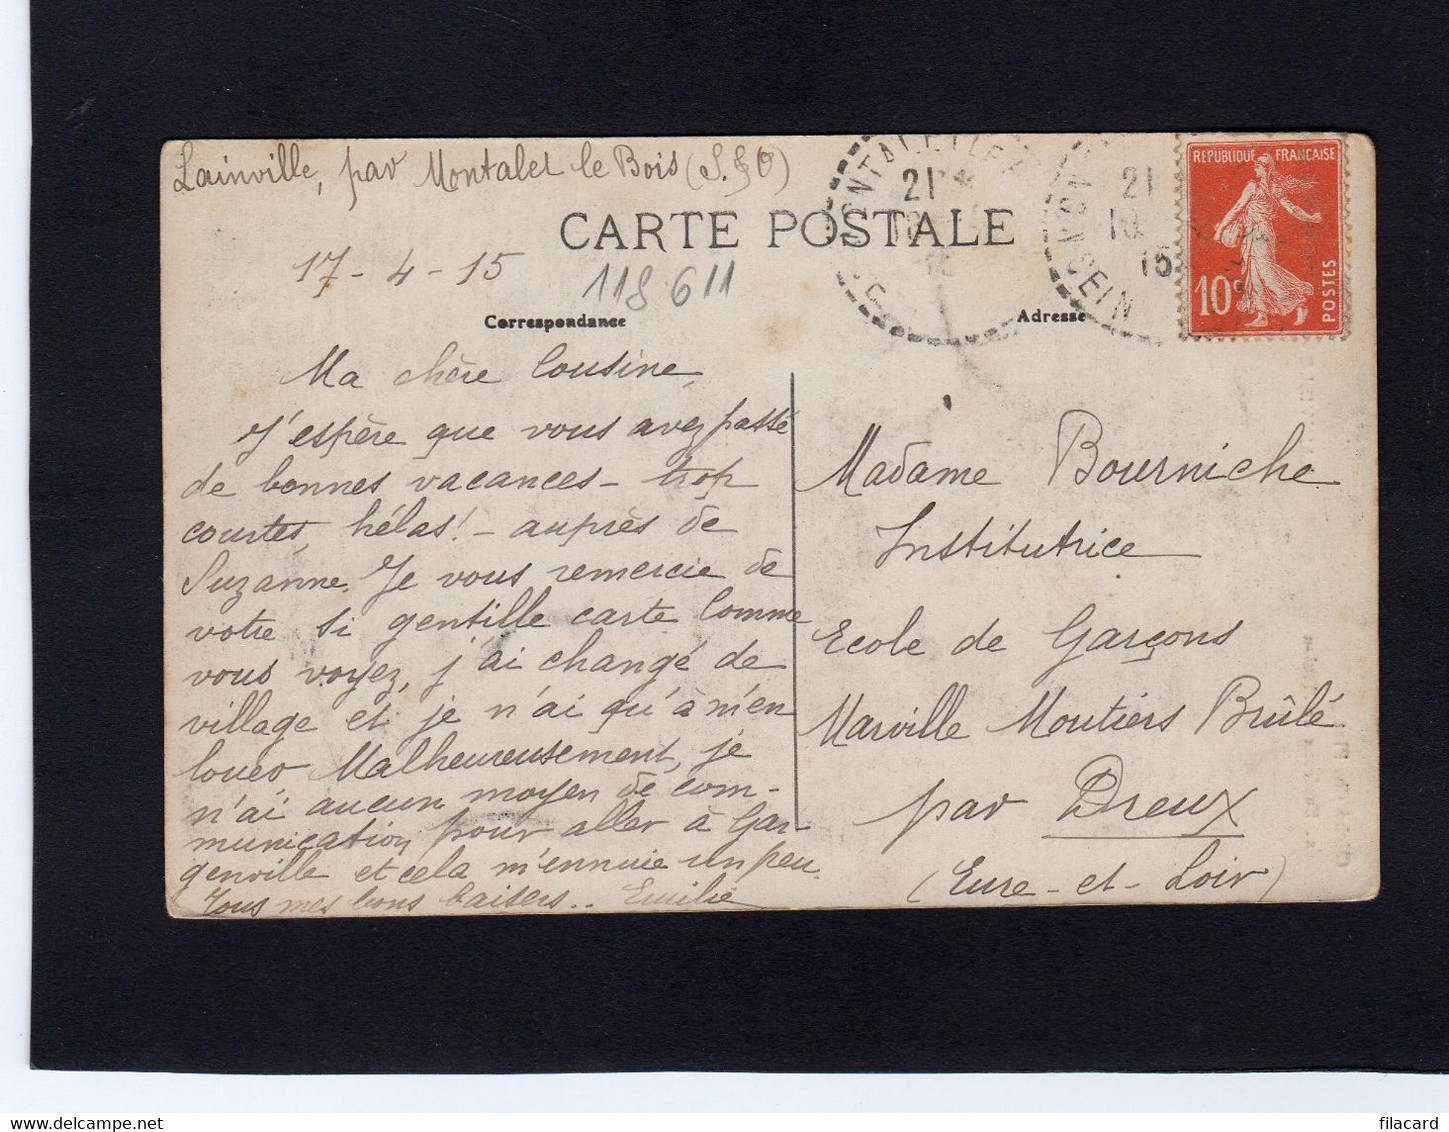 Lainville, par Montalet le Bois (S. & O)
CARTE POSTALE
17 - 4 - 15
118 611
Correspondance
Adresse
REPUBLIQUE FRANÇAISE
10c
POSTES
21
21
15
SEIN
Ma chère Cousine,
J'espère que vous avez passé
de bonnes vacances - trop
courtes, hélas! - auprès de
Suzanne. Je vous remercie de
votre si gentille carte Comme
vous voyez, j'ai changé de
village et je n'ai qu'à m'en
louer Malheureusement, je
n'ai aucun moyen de com-
munication pour aller à Gar-
genville et cela m'ennuie un peu.
Tous mes bons baisers.. Emilie
Madame Bourniche
Institutrice
Ecole de Garçons
Marville Moutiers Brûlé
par Dreux
(Eure-et-Loir)
www.delcampe.net
filacard